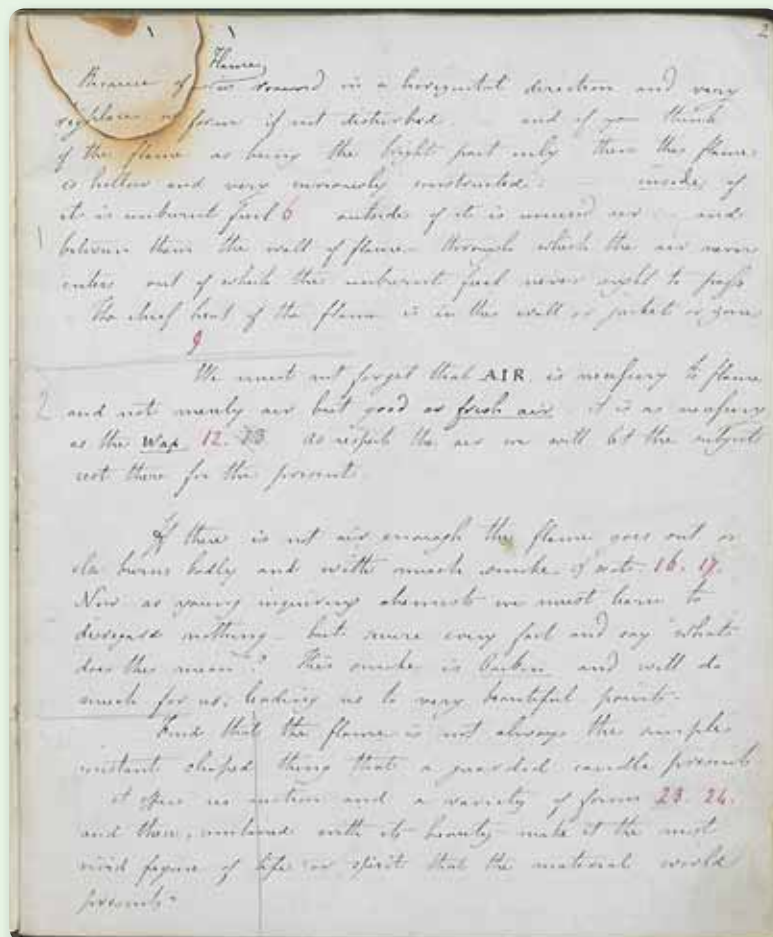 2
Flame
Because of its round in a horizontal direction and very
regular in form if not disturbed and if you think
of the flame as being the bright part only then the flame
is hollow and very curiously constructed: inside of
it is unburnt fuel 6 outside of it is unused air and
1 between them the wall of flame through which the air never
enters out of which the unburnt fuel never ought to pass
The chief heat of the flame is in this wall or jacket or zone
9
We must not forget that AIR is necessary to flame
2 and not merely air but good or fresh air it is as necessary
as the Wax 12. 13 As respects the air we will let the subject
rest there for the present
If there is not air enough the flame goes out or
else burns badly and with much smoke 16. 17.
Now as young inquiring chemists we must learn to
disregard nothing but every fact and say "what
does this mean"? This smoke is Carbon and will do
much for us, leading us to very beautiful points.
Find that the flame is not always the simple
constant shaped thing that a guarded candle presents
it offers us motion and a variety of forms 23. 24.
and these, combined with its beauty make it the most
vivid figure of life or spirit that the material world
presents